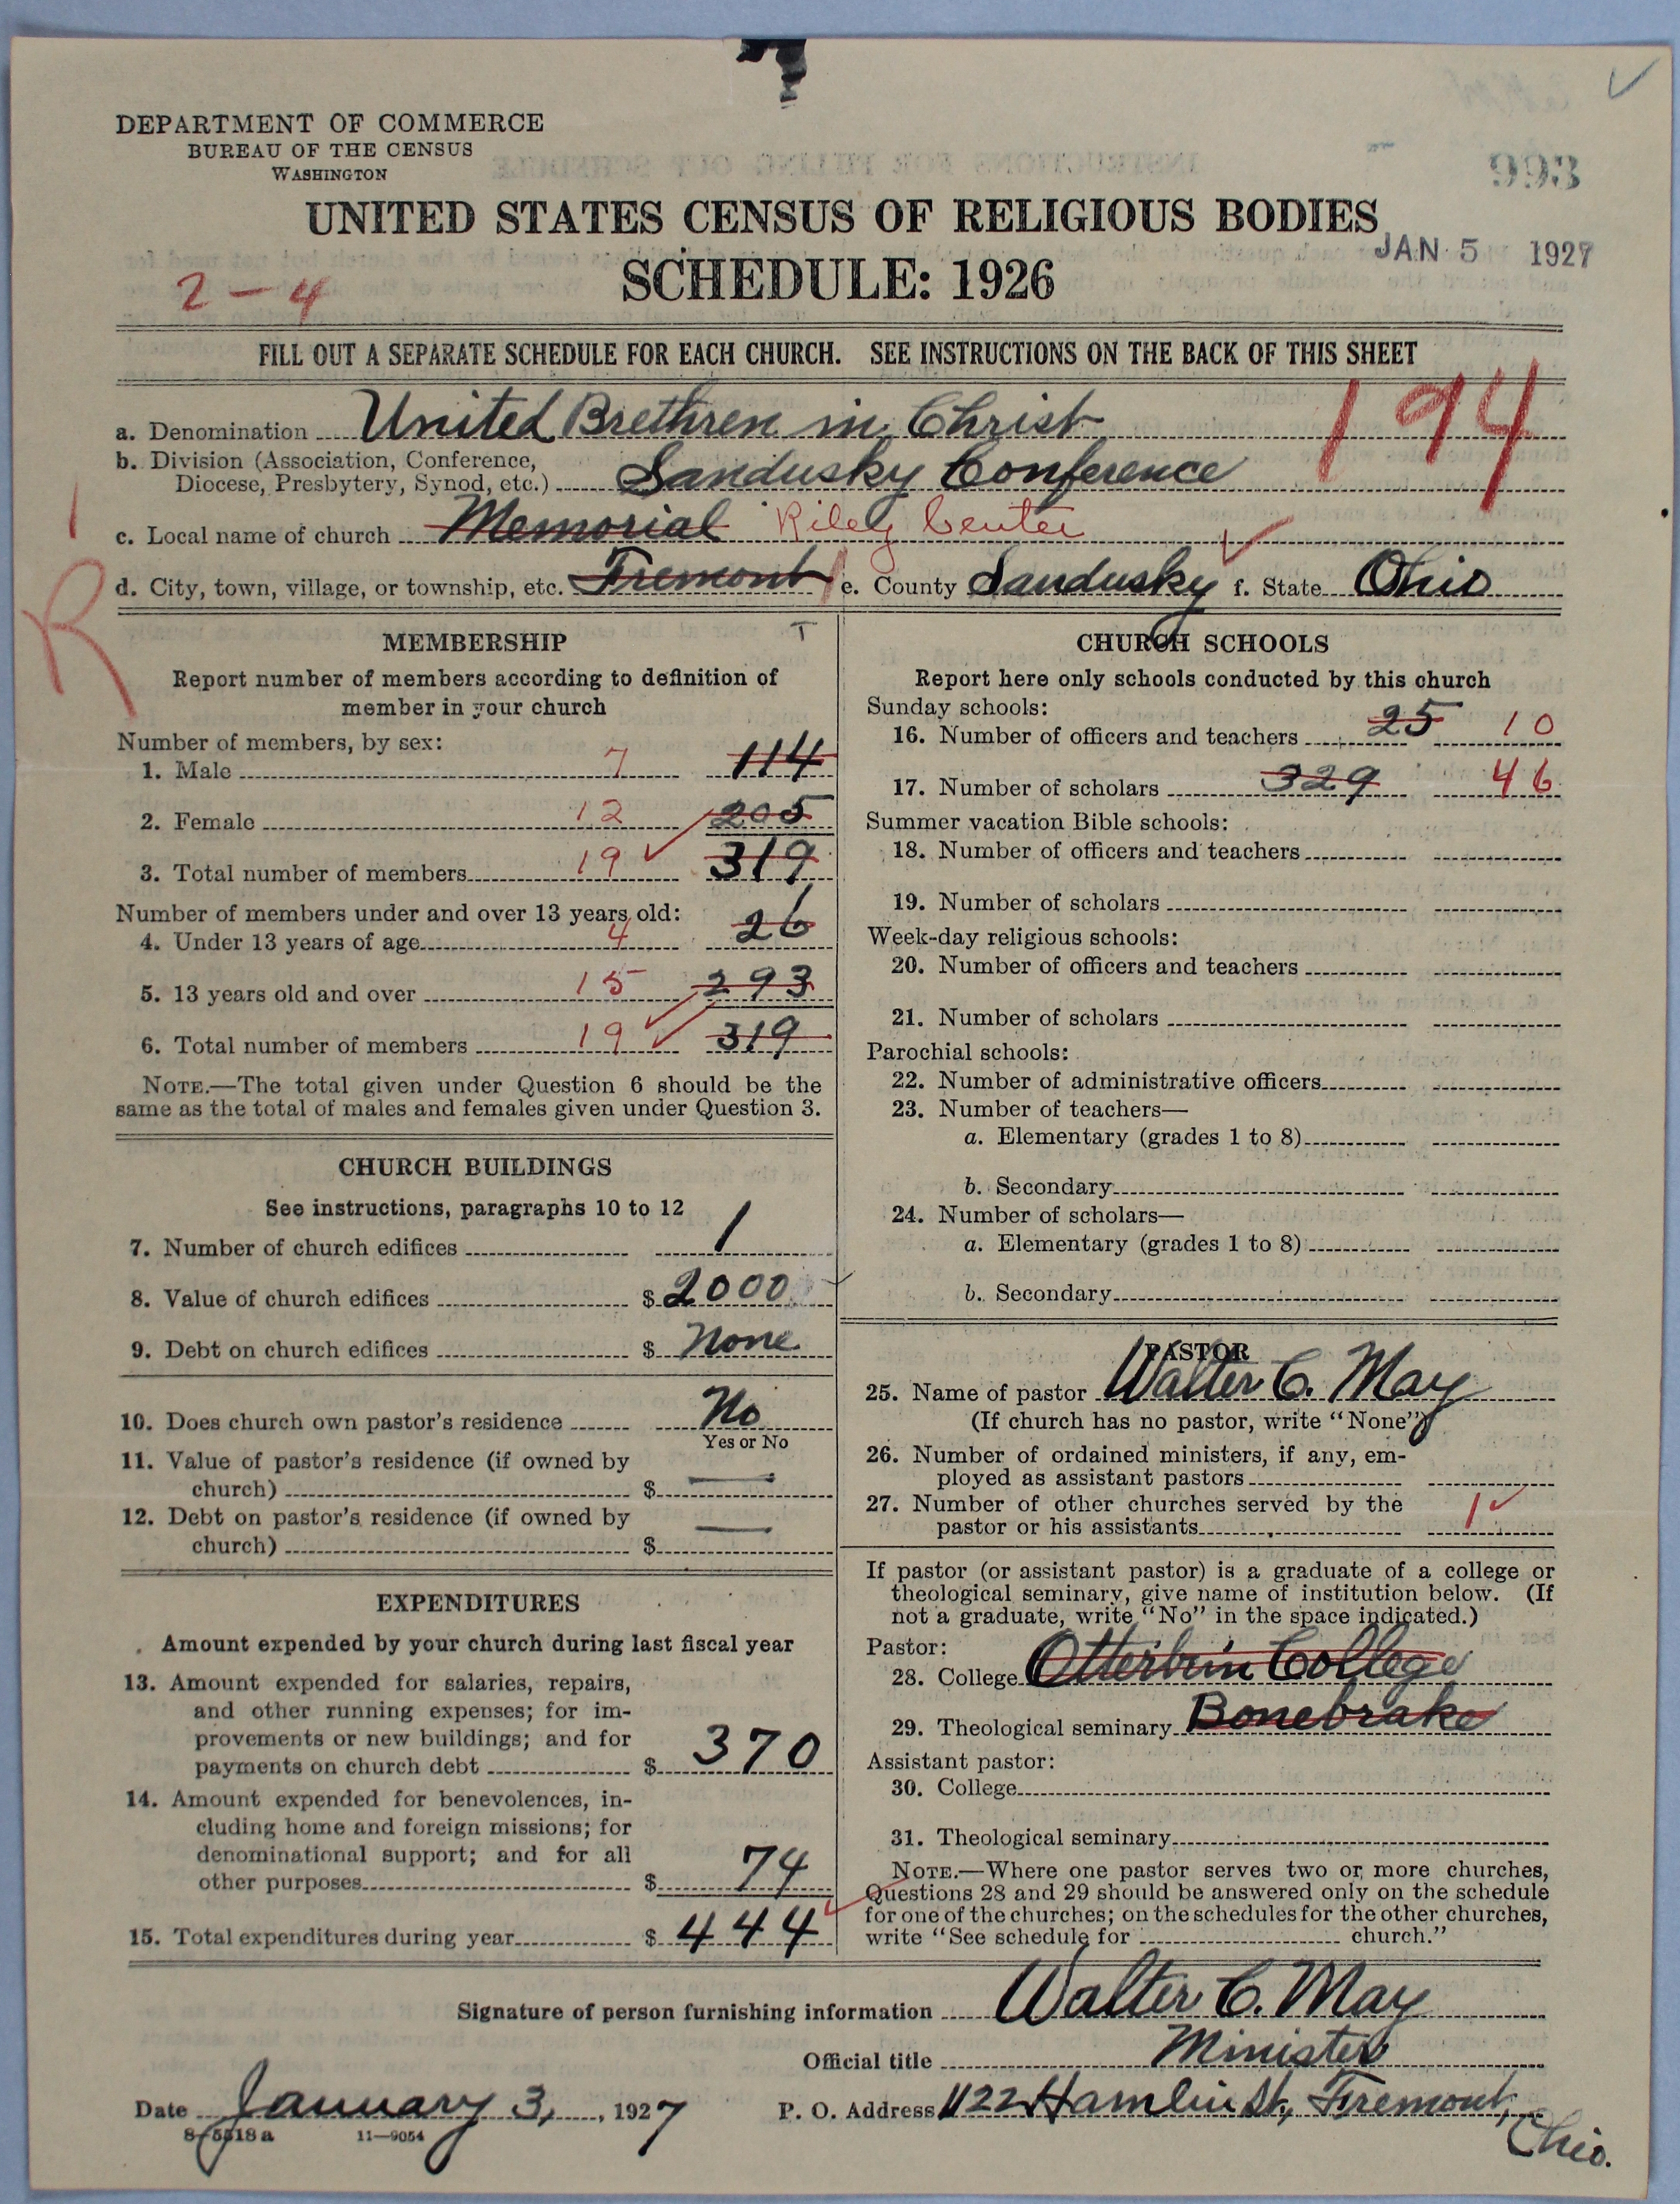 DEPARTMENT OF COMMERCE
BUREAU OF THE CENSUS
WASHINGTON
993
UNITED STATES CENSUS OF RELIGIOUS BODIES
JAN 5 1927
SCHEDULE: 1926
2-4
FILL OUT A SEPARATE SCHEDULE FOR EACH CHURCH. SEE INSTRUCTIONS ON THE BACK OF THIS SHEET
194
a. Denomination United Brethren in Christ
b. Division (Association, Conference,
Diocese, Presbytery, Synod, etc.) Sandusky Conference
c. Local name of church Memorial Riley Center
d. City, town, village, or township, etc. Fremont e. County Sandusky f. State Ohio
R
MEMBERSHIP T
Report number of members according to definition of
member in your church
Number of members, by sex:
1. Male 7 114
2. Female 12 205
3. Total number of members 19 319
Number of members under and over 13 years old:
4. Under 13 years of age 4 26
5. 13 years old and over 15 293
6. Total number of members 19 319
NOTE.—The total given under Question 6 should be the
same as the total of males and females given under Question 3.
CHURCH BUILDINGS
See instructions, paragraphs 10 to 12
7. Number of church edifices 1
8. Value of church edifices $ 2000
9. Debt on church edifices $ None
10. Does church own pastor's residence No
Yes or No
11. Value of pastor's residence (if owned by
church) $ —
12. Debt on pastor's residence (if owned by
church) $ —
EXPENDITURES
Amount expended by your church during last fiscal year
13. Amount expended for salaries, repairs,
and other running expenses; for im-
provements or new buildings; and for
payments on church debt $ 370
14. Amount expended for benevolences, in-
cluding home and foreign missions; for
denominational support; and for all
other purposes $ 74
15. Total expenditures during year $ 444
CHURCH SCHOOLS
Report here only schools conducted by this church
Sunday schools:
16. Number of officers and teachers 25 10
17. Number of scholars 329 46
Summer vacation Bible schools:
18. Number of officers and teachers
19. Number of scholars
Week-day religious schools:
20. Number of officers and teachers
21. Number of scholars
Parochial schools:
22. Number of administrative officers
23. Number of teachers—
a. Elementary (grades 1 to 8)
b. Secondary
24. Number of scholars—
a. Elementary (grades 1 to 8)
b. Secondary
PASTOR
25. Name of pastor Walter C. May
(If church has no pastor, write "None")
26. Number of ordained ministers, if any, em-
ployed as assistant pastors
27. Number of other churches served by the
pastor or his assistants 1
If pastor (or assistant pastor) is a graduate of a college or
theological seminary, give name of institution below. (If
not a graduate, write "No" in the space indicated.)
Pastor:
28. College Otterbein College
29. Theological seminary Bonebrake
Assistant pastor:
30. College
31. Theological seminary
NOTE.—Where one pastor serves two or more churches,
Questions 28 and 29 should be answered only on the schedule
for one of the churches; on the schedules for the other churches,
write "See schedule for church."
Signature of person furnishing information Walter C. May
Official title Minister
Date January 3, 1927 P. O. Address 1122 Hamlin St., Fremont,
Ohio.
8-5518a 11—9054